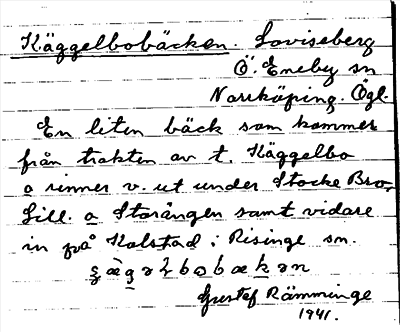 Käggelbobäcken. Loviseberg
Ö. Eneby sn
Norrköping. Ögl.
En liten bäck som kommer
från trakten av t. Käggelbo
o rinner v. ut under Stocke Bro,
Lill. o Storängen samt vidare
in på Kolstad i Risinge sn.
Gustef Rämminge
1941.